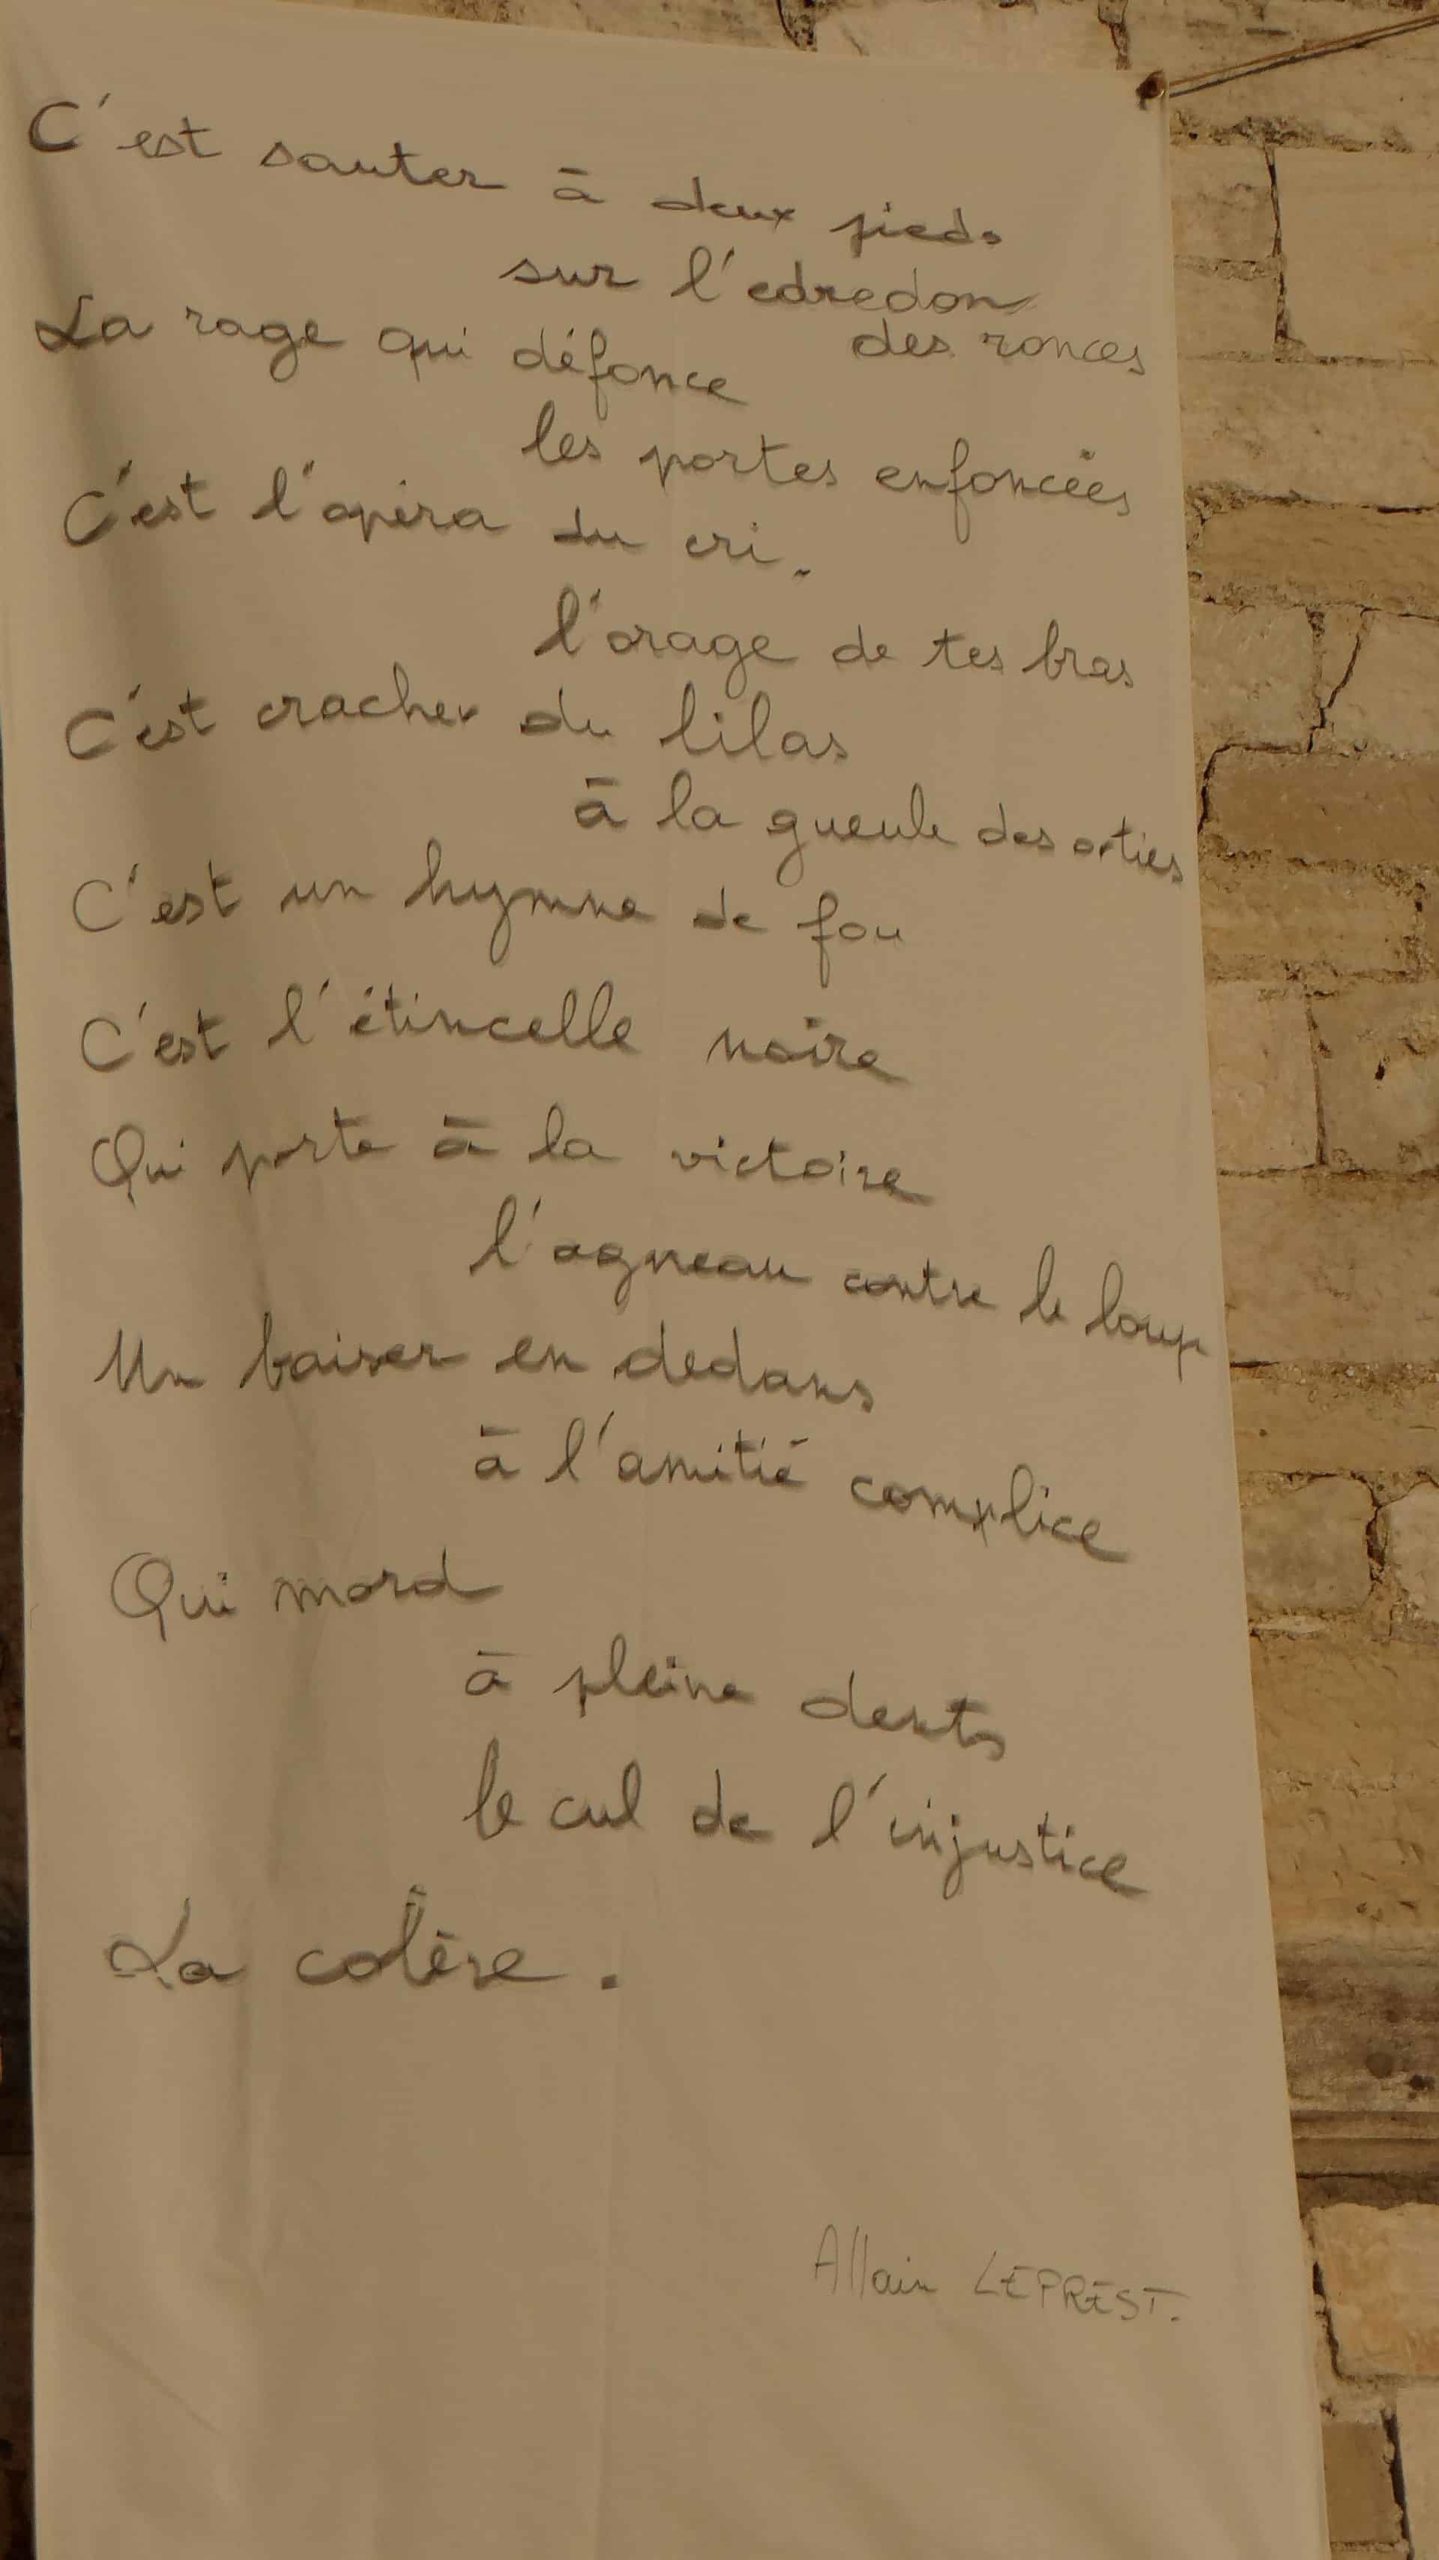 C'est sauter à deux pieds
sur l'edredon
des ronces
La rage qui défonce
les portes enfoncées
C'est l'opéra du cri.
l'orage de tes bras
C'est cracher du lilas
à la gueule des orties
C'est un hymne de fou
C'est l'étincelle noire
Qui porte à la victoire
l'agneau contre le loup
Un baiser en dedans
à l'amitié complice
Qui mord
à pleine dents
le cul de l'injustice
La colère.
Allain LEPREST.